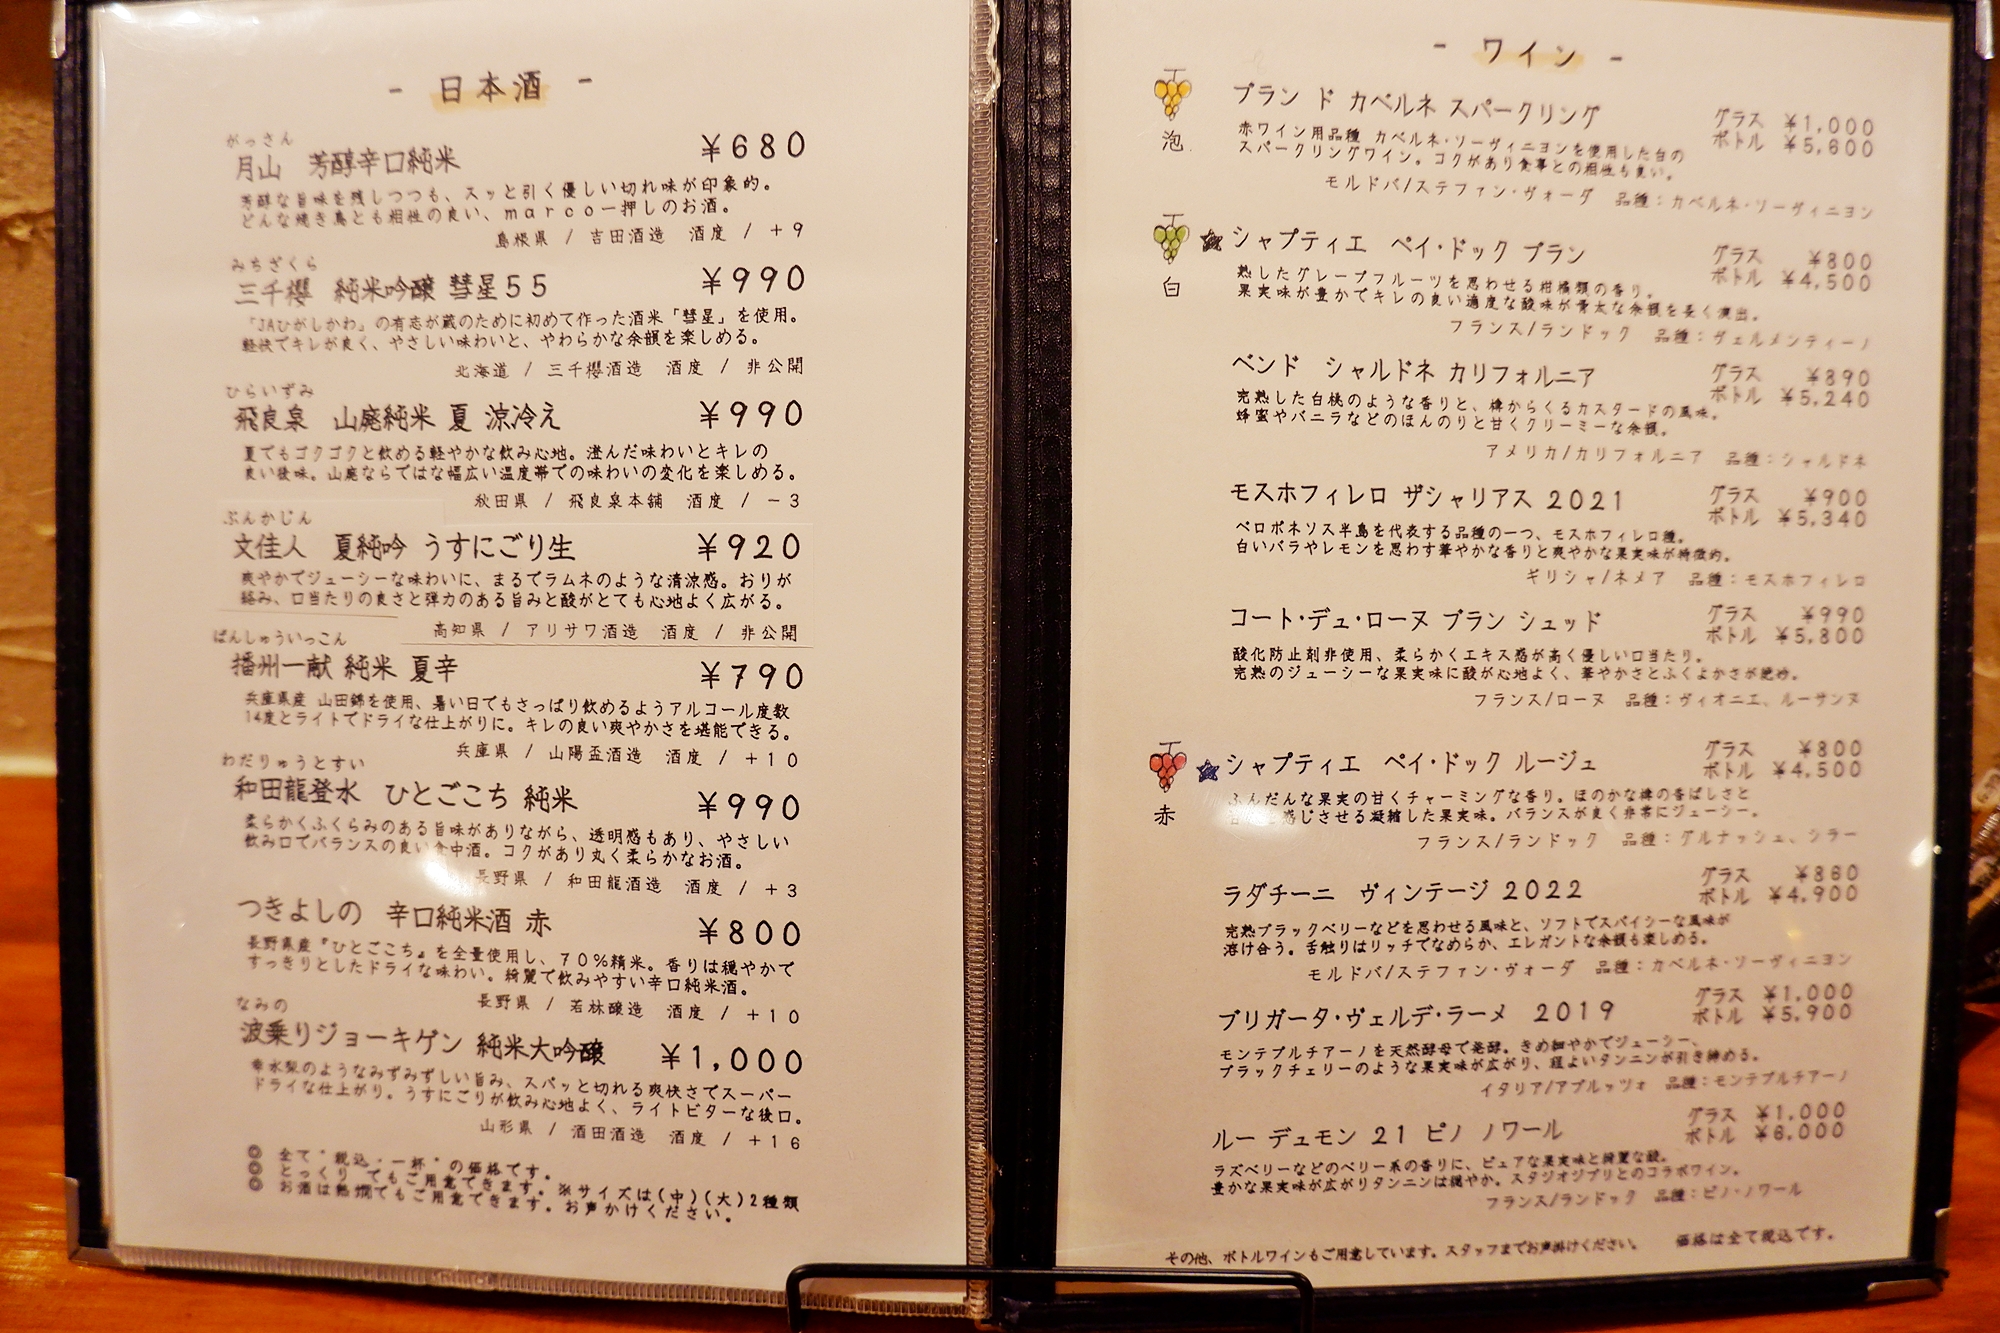 - 日本酒 -
がっさん
月山 芳醇辛口純米 ¥680
芳醇な旨味を残しつつも、スッと引く優しい切れ味が印象的。
どんな焼き鳥とも相性の良い、marco一押しのお酒。
島根県 / 吉田酒造 酒度 / +9
みちざくら
三千櫻 純米吟醸 彗星55 ¥990
「JAひがしかわ」の有志が蔵のために初めて作った酒米「彗星」を使用。
軽快でキレが良く、やさしい味わいと、やわらかな余韻を楽しめる。
北海道 / 三千櫻酒造 酒度 / 非公開
ひらいずみ
飛良泉 山廃純米 夏 涼冷え ¥990
夏でもゴクゴクと飲める軽やかな飲み心地。澄んだ味わいとキレの
良い後味。山廃ならではな幅広い温度帯での味わいの変化を楽しめる。
秋田県 / 飛良泉本舗 酒度 / −3
ぶんかじん
文佳人 夏純吟 うすにごり生 ¥920
爽やかでジューシーな味わいに、まるでラムネのような清涼感。おりが
絡み、口当たりの良さと弾力のある旨みと酸がとても心地よく広がる。
高知県 / アリサワ酒造 酒度 / 非公開
ばんしゅういっこん
播州一献 純米 夏辛 ¥790
兵庫県産 山田錦を使用、暑い日でもさっぱり飲めるようアルコール度数
14度とライトでドライな仕上がりに。キレの良い爽やかさを堪能できる。
兵庫県 / 山陽盃酒造 酒度 / +10
わだりゅうとすい
和田龍登水 ひとごこち 純米 ¥990
柔らかくふくらみのある旨味がありながら、透明感もあり、やさしい
飲み口でバランスの良い食中酒。コクがあり丸く柔らかなお酒。
長野県 / 和田龍酒造 酒度 / +3
つきよしの 辛口純米酒 赤 ¥800
長野県産『ひとごこち』を全量使用し、70%精米。香りは穏やかで
すっきりとしたドライな味わい。綺麗で飲みやすい辛口純米酒。
長野県 / 若林醸造 酒度 / +10
なみの
波乗りジョーキゲン 純米大吟醸 ¥1,000
幸水梨のようなみずみずしい旨み、スパッと切れる爽快さでスーパー
ドライな仕上がり。うすにごりが飲み心地よく、ライトビターな後口。
山形県 / 酒田酒造 酒度 / +16
◎ 全て"税込・一杯"の価格です。
◎ とっくり でもご用意できます。※サイズは(中)(大)2種類
◎ お酒は熱燗でもご用意できます。お声かけください。
- ワイン -
泡
ブラン ド カベルネ スパークリング グラス ¥1,000
ボトル ¥5,600
赤ワイン用品種 カベルネ・ソーヴィニヨンを使用した白の
スパークリングワイン。コクがあり食事との相性も良い。
モルドバ/ステファン・ヴォーダ 品種:カベルネ・ソーヴィニヨン
白
シャプティエ ペイ・ドック ブラン グラス ¥800
ボトル ¥4,500
熟したグレープフルーツを思わせる柑橘類の香り。
果実味が豊かでキレの良い適度な酸味が骨太な余韻を長く演出。
フランス/ランドック 品種:ヴェルメンティーノ
ベンド シャルドネ カリフォルニア グラス ¥890
ボトル ¥5,240
完熟した白桃のような香りと、樽からくるカスタードの風味。
蜂蜜やバニラなどのほんのりと甘くクリーミーな余韻。
アメリカ/カリフォルニア 品種:シャルドネ
モスホフィレロ ザシャリアス 2021 グラス ¥900
ボトル ¥5,340
ペロポネソス半島を代表する品種の一つ、モスホフィレロ種。
白いバラやレモンを思わす華やかな香りと爽やかな果実味が特徴的。
ギリシャ/ネメア 品種:モスホフィレロ
コート・デュ・ローヌ ブラン シュッド グラス ¥990
ボトル ¥5,800
酸化防止剤非使用、柔らかくエキス感が高く優しい口当たり。
完熟のジューシーな果実味に酸が心地よく、華やかさとふくよかさが絶妙。
フランス/ローヌ 品種:ヴィオニエ、ルーサンヌ
赤
シャプティエ ペイ・ドック ルージュ グラス ¥800
ボトル ¥4,500
ふんだんな果実の甘くチャーミングな香り。ほのかな樽の香ばしさと
感じさせる凝縮した果実味。バランスが良く非常にジューシー。
フランス/ランドック 品種:グルナッシュ、シラー
ラダチーニ ヴィンテージ 2022 グラス ¥860
ボトル ¥4,900
完熟ブラックベリーなどを思わせる風味と、ソフトでスパイシーな風味が
溶け合う。舌触りはリッチでなめらか、エレガントな余韻も楽しめる。
モルドバ/ステファン・ヴォーダ 品種:カベルネ・ソーヴィニヨン
ブリガータ・ヴェルデ・ラーメ 2019 グラス ¥1,000
ボトル ¥5,900
モンテプルチアーノを天然酵母で発酵。きめ細やかでジューシー、
ブラックチェリーのような果実味が広がり、程よいタンニンが引き締める。
イタリア/アブルッツォ 品種:モンテプルチアーノ
ルー デュモン 21 ピノ ノワール グラス ¥1,000
ボトル ¥6,000
ラズベリーなどのベリー系の香りに、ピュアな果実味と綺麗な酸。
豊かな果実味が広がりタンニンは穏やか。スタジオジブリとのコラボワイン。
フランス/ランドック 品種:ピノ・ノワール
価格は全て税込です。
その他、ボトルワインもご用意しています。スタッフまでお声掛けください。